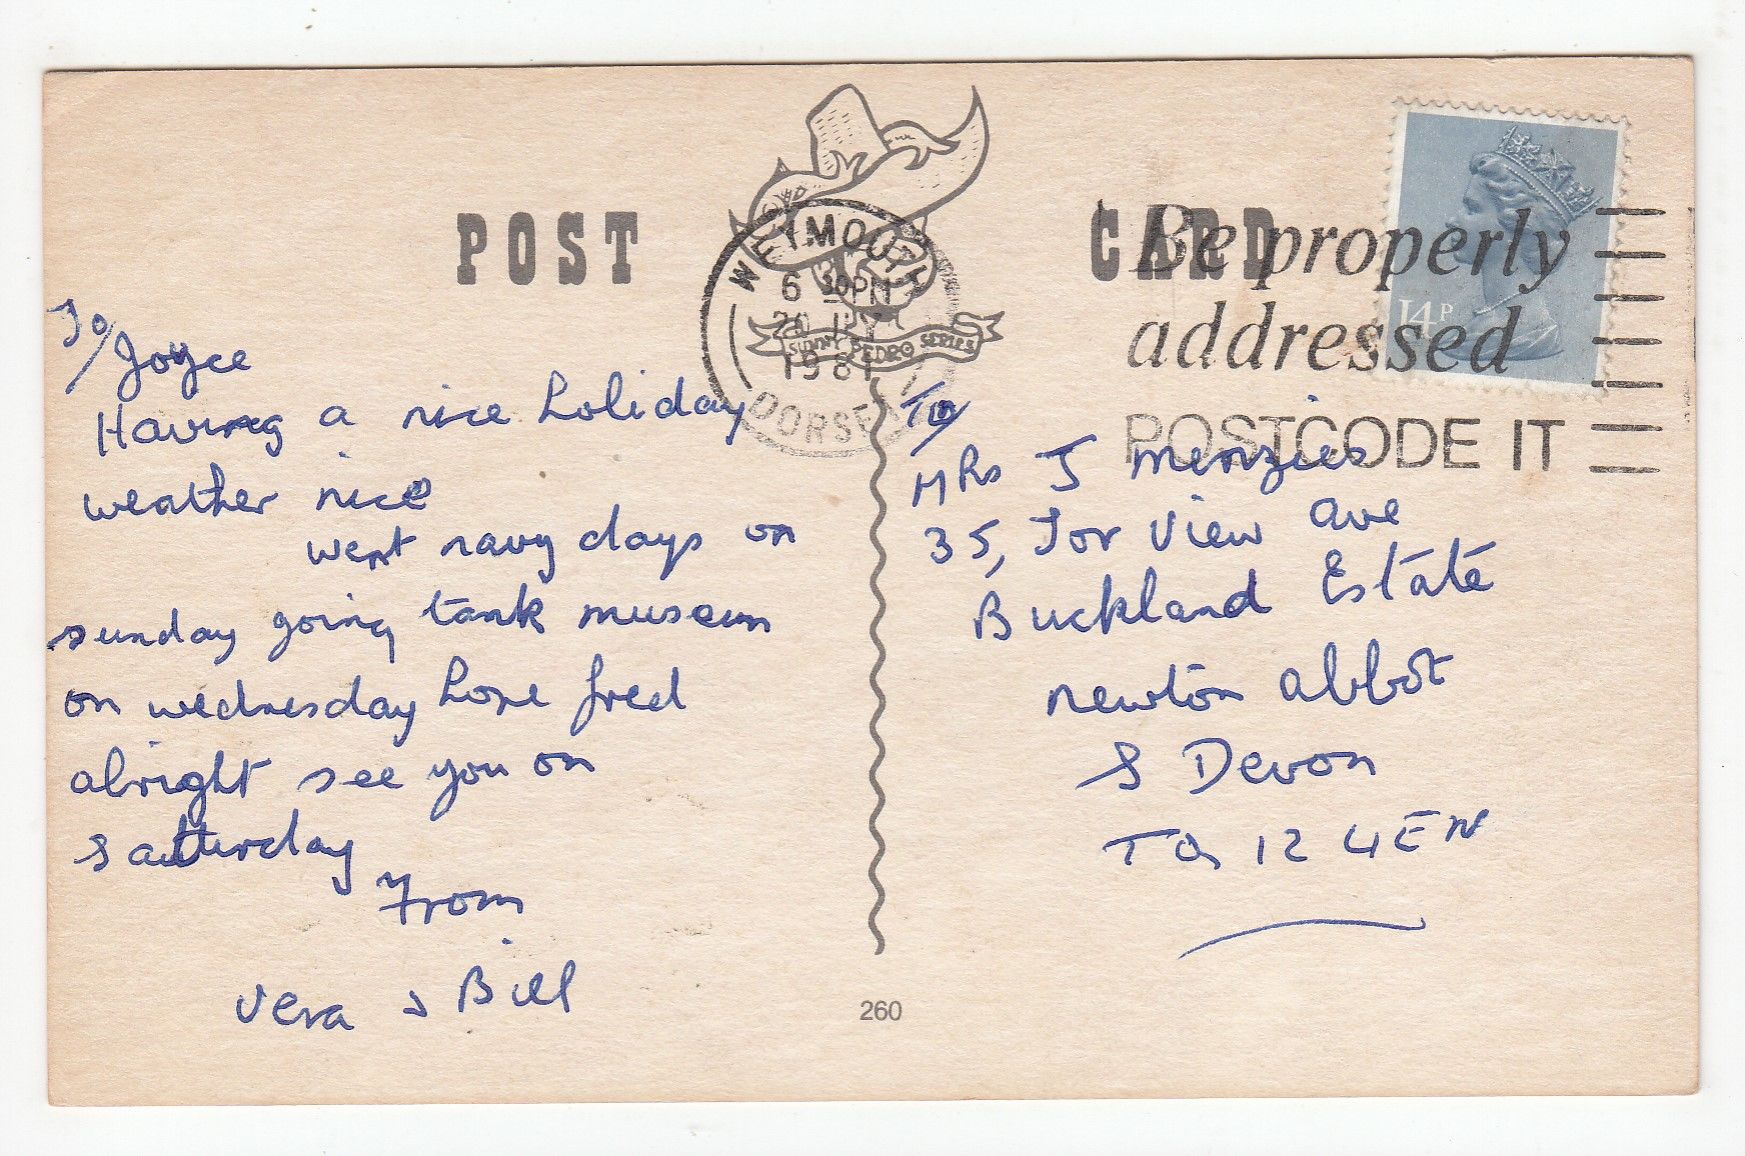 POST CARD
WEYMOUTH
6 30PM
1981
DORSET
SUNNY PEDRO SERIES
Be properly
addressed
POSTCODE IT
14P
To/
Joyce
Having a nice holiday
weather nice
went navy days on
sunday going tank museum
on wednesday hope fred
alright see you on
satturday
From
Vera & Bill
To
Mrs J Menzies
35, Tor View Ave
Buckland Estate
newton abbot
S Devon
TQ 12 4EN
260